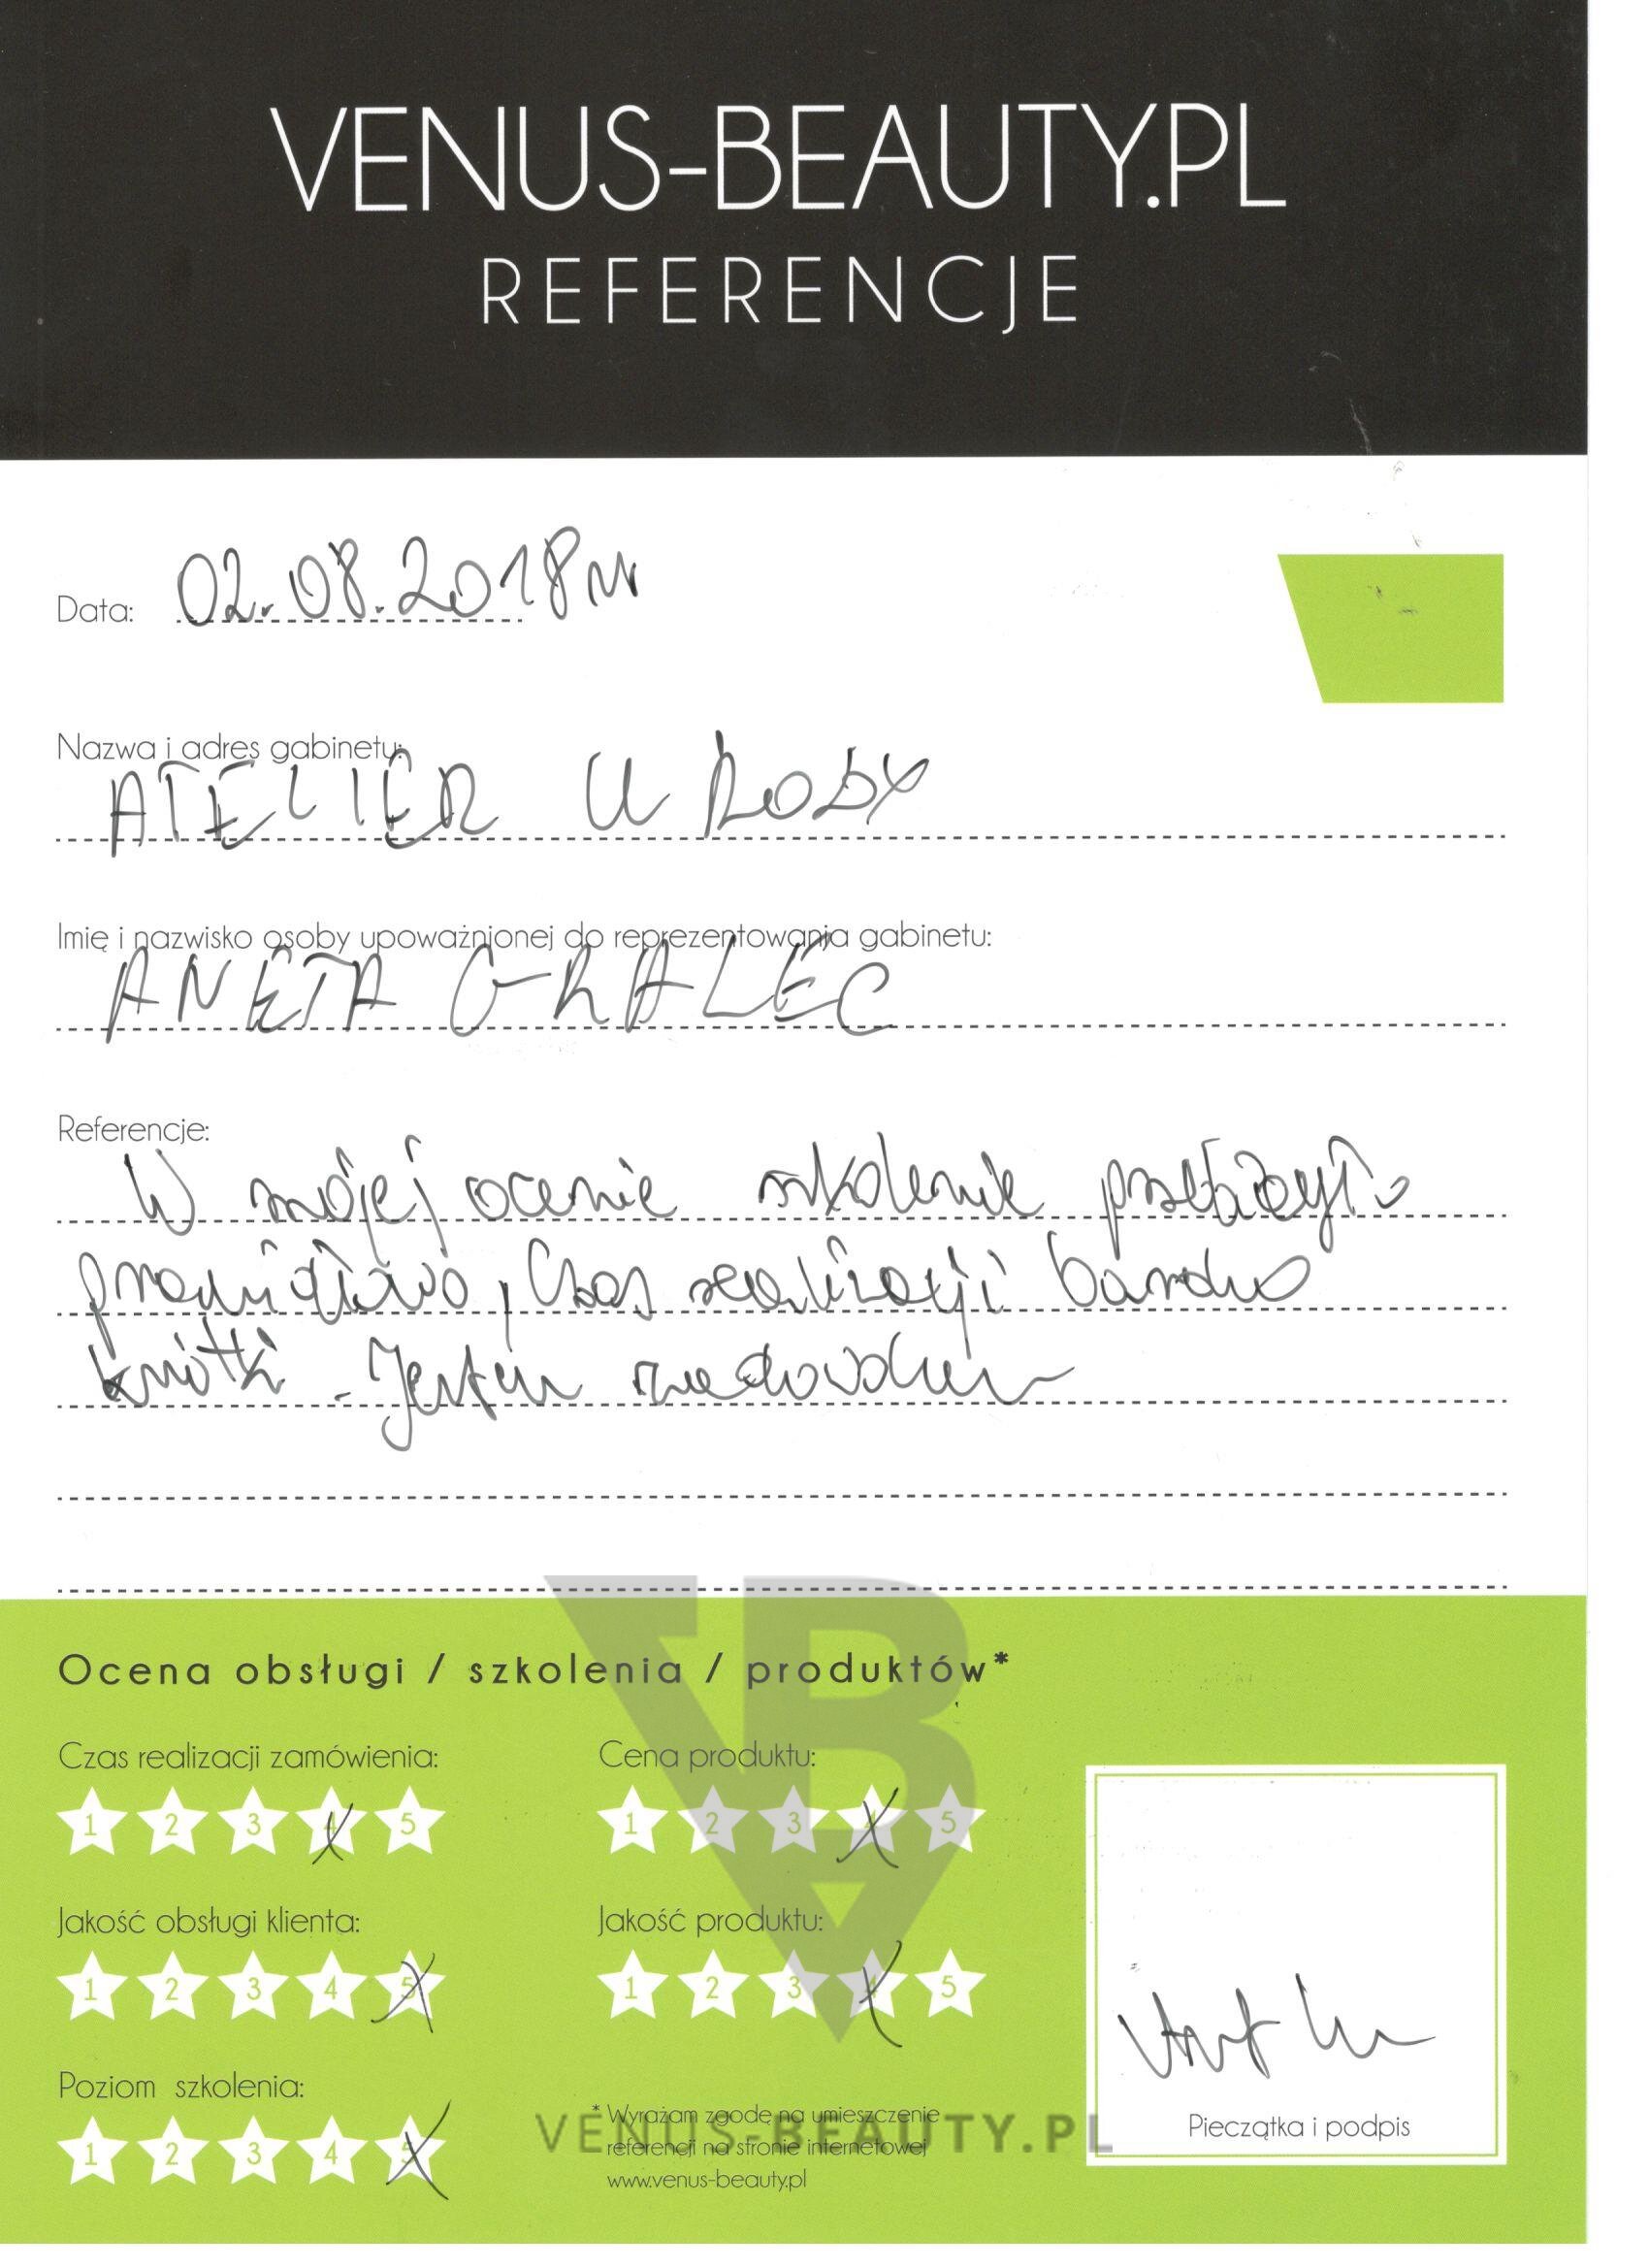 VENUS-BEAUTY.PL
REFERENCJE
Data: 02.08.2018r
Nazwa i adres gabinetu:
ATELIER URODY
Imię i nazwisko osoby upoważnionej do reprezentowania gabinetu:
ANETA GRALEC
Referencje:
W mojej ocenie szkolenie przebiegło
prawidłowo, Czas realizacji bardzo
krótki. Jestem zadowolona
Ocena obsługi / szkolenia / produktów*
Czas realizacji zamówienia: Cena produktu:
1 2 3 4 5 1 2 3 4 5
Jakość obsługi klienta: Jakość produktu:
1 2 3 4 5 1 2 3 4 5
Poziom szkolenia:
1 2 3 4 5
* Wyrażam zgodę na umieszczenie
referencji na stronie internetowej
www.venus-beauty.pl
VENUS-BEAUTY.PL
Pieczątka i podpis